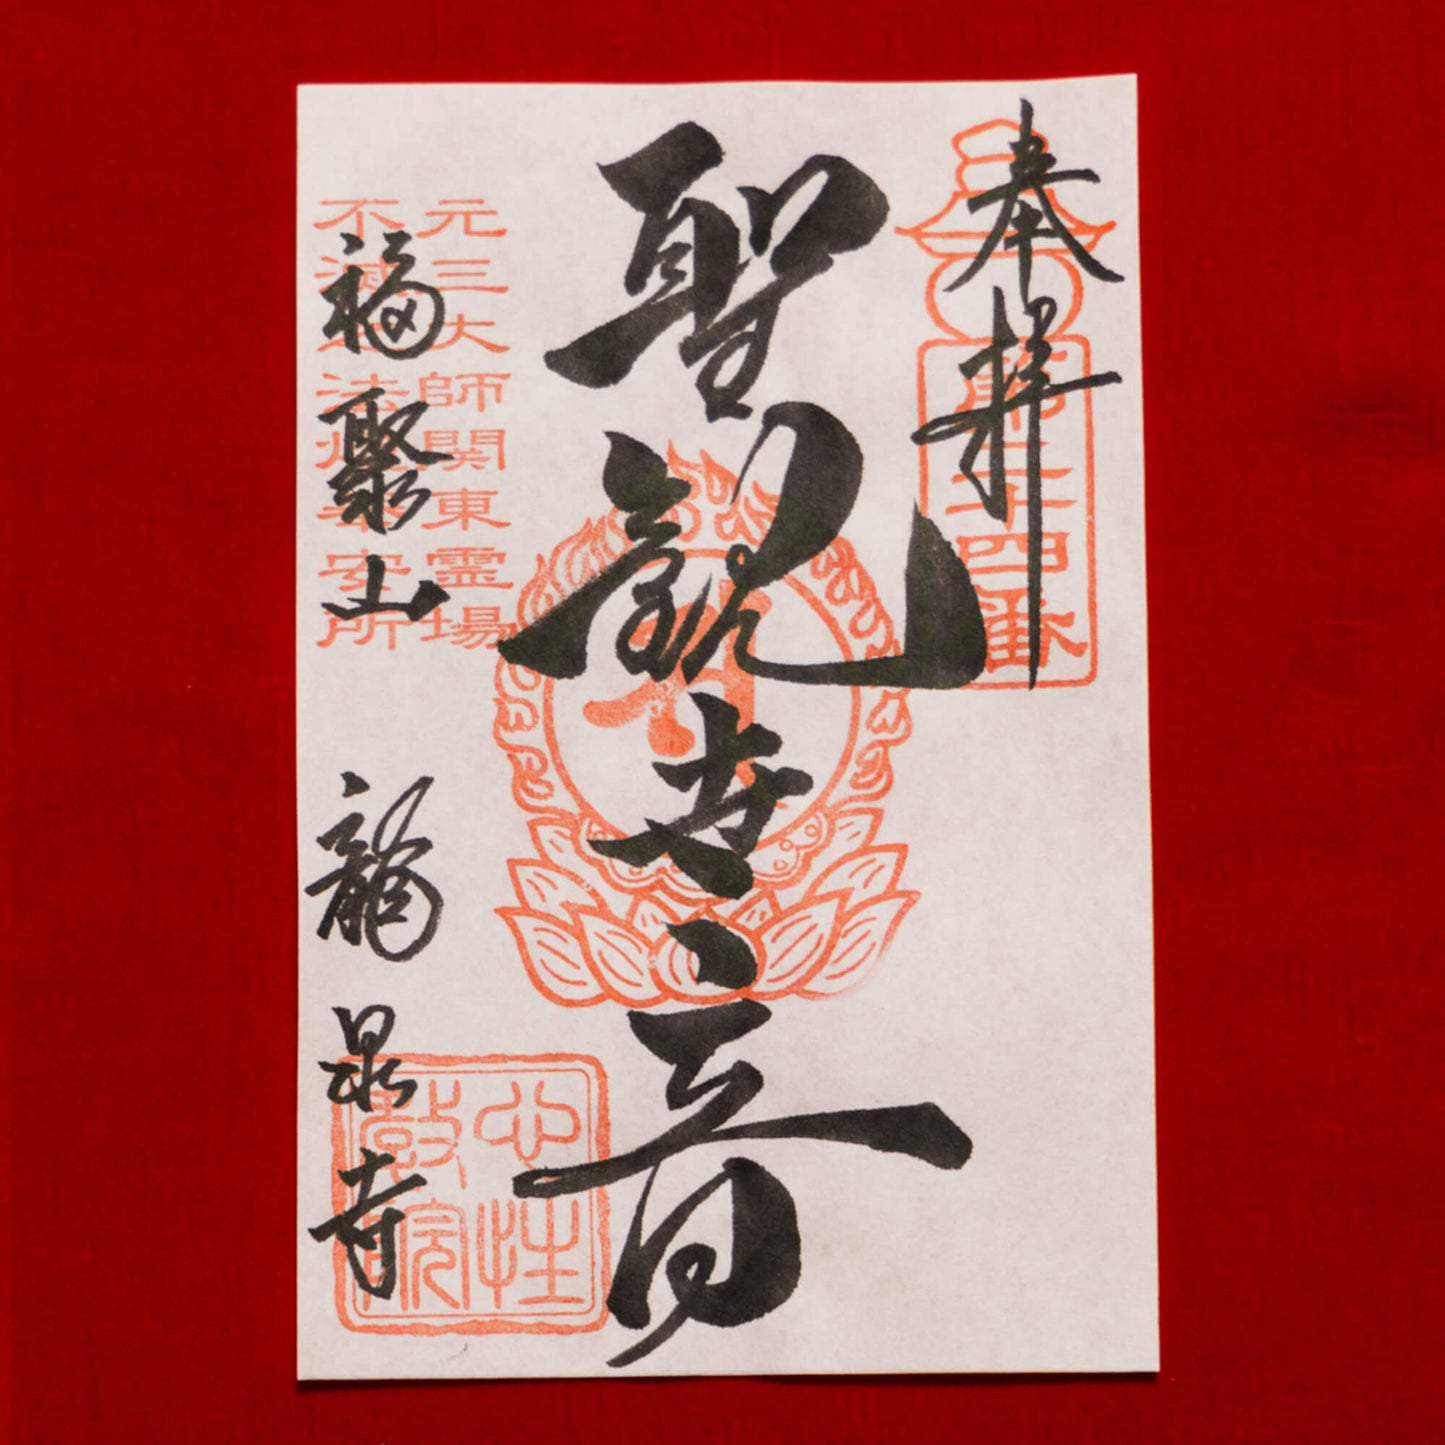 奉拝
第二十四番
聖観世音
元三大師関東霊場
不滅之法燈奉安所
福聚山
龍泉寺
心性
教院